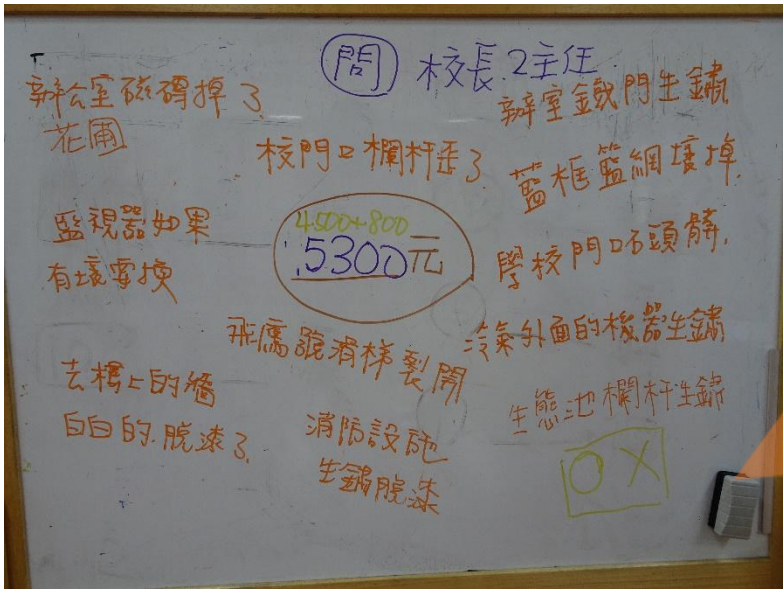 問 校長.2主任
辦公室磁磚掉了
花圃
校門口欄杆歪了
辦室鐵門生鏽
籃框籃網壞掉
監視器如果
有壞要換
4500+800
5300元
學校門口石頭髒
飛鷹號滑梯裂開
冷氣外面的機器生鏽
去樓上的牆
白白的.脫漆了
消防設施
生鏽脫漆
生態池欄杆生鏽
O X